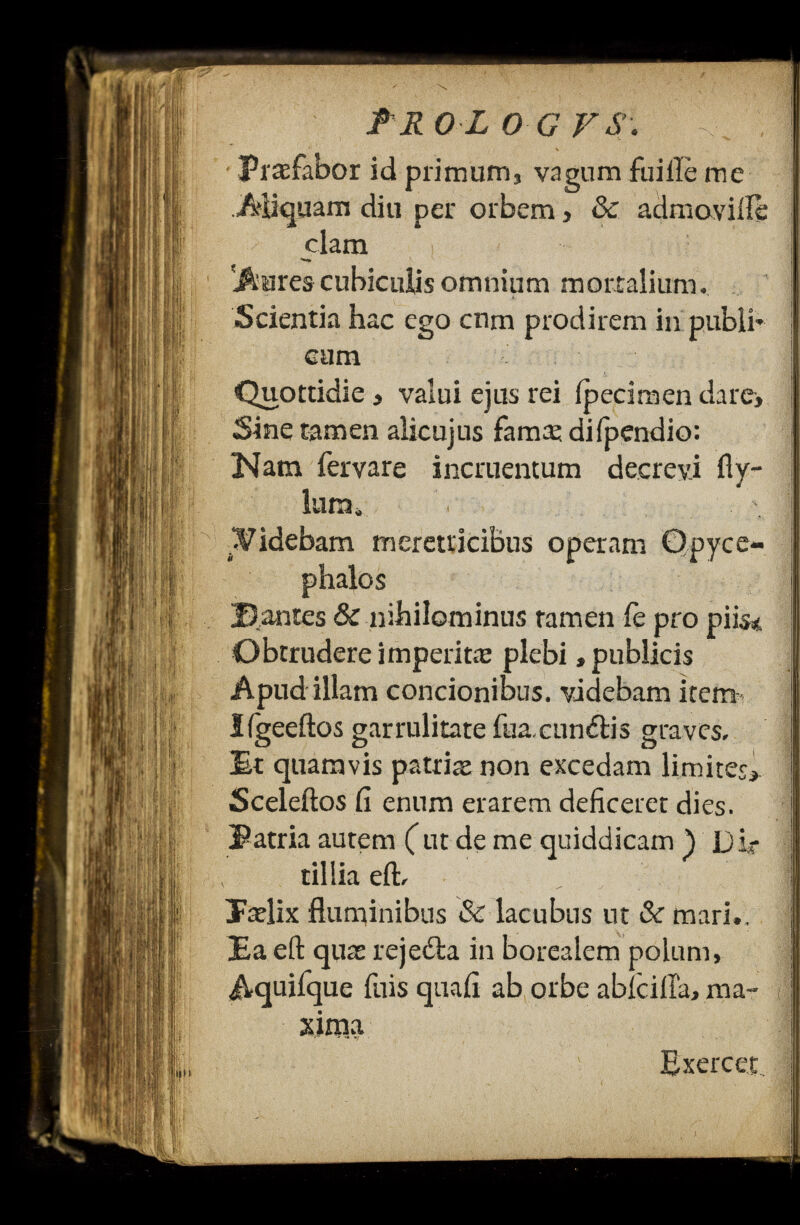 PROLOGVS.
Præfabor id primum, vagum fuiſſe me
Aliquam diu per orbem, & admoviſſe
clam
Aures cubiculis omnium mortalium.
Scientia hac ego cum prodirem in publi-
cum
Quottidie, valui ejus rei ſpecimen dare,
Sine tamen alicujus famæ diſpendio:
Nam ſervare incruentum decrevi ſty-
lum.
Videbam meretricibus operam Opyce-
phalos
Dantes & nihilominus tamen ſe pro piis
Obtrudere imperitæ plebi, publicis
Apud illam concionibus. videbam item
Iſgeeſtos garrulitate ſua cunctis graves.
Et quamvis patriæ non excedam limites,
Sceleſtos ſi enum erarem deficeret dies.
Patria autem (ut de me quiddicam) Dir
tillia eſt,
Fælix fluminibus & lacubus ut & mari.
Ea eſt quæ rejecta in borealem polum,
Aquiſque ſuis quaſi ab orbe abſciſſa, ma-
xima
Exercet